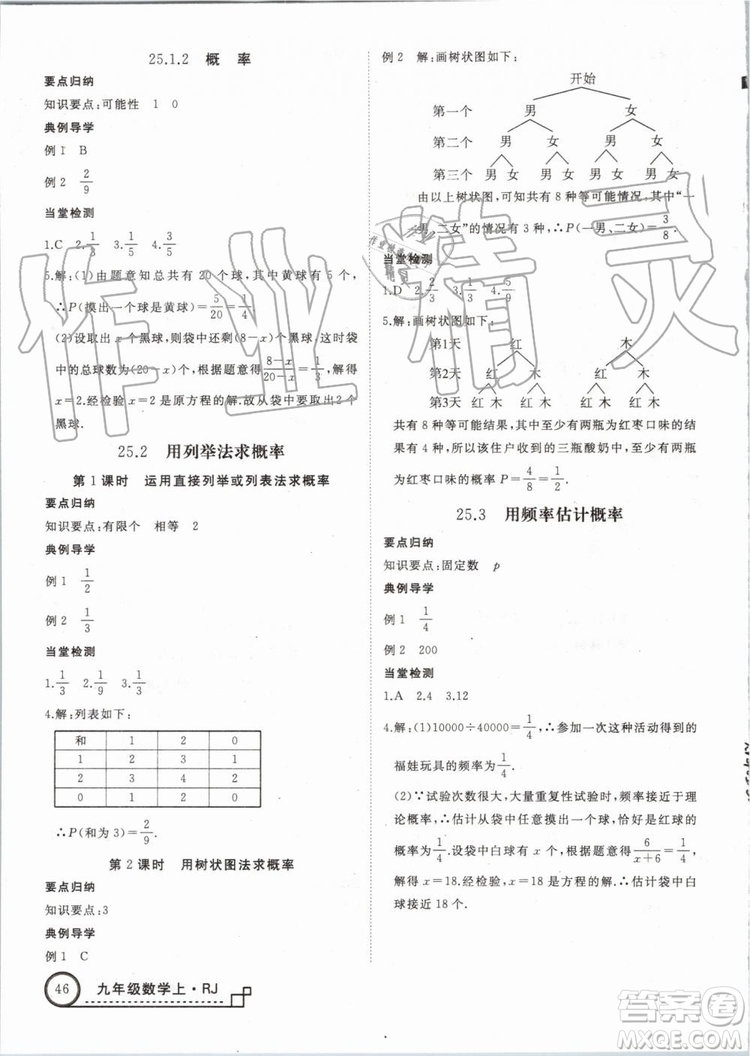 25.1.2 概 率
要点归纳
知识要点:可能性 1 0
典例导学
例1 B
例2 2/9
当堂检测
1.C 2.1/3 3.1/5 4.1/3
5.解:(1)由题意知总共有20个球,其中黄球有5个,
∴P(摸出一个球是黄球)=5/20=1/4.
(2)设取出x个黑球,则袋中还剩(8-x)个黑球,这时袋
中的总球数为(20-x)个.根据题意得(8-x)/(20-x)=1/3.解得
x=2.经检验x=2是原方程的解.故从袋中要取出2个
黑球.
25.2 用列举法求概率
第1课时 运用直接列举或列表法求概率
要点归纳
知识要点:有限个 相等 2
典例导学
例1 1/2
例2 1/3
当堂检测
1.1/3 2.1/9 3.1/3
4.解:列表如下:
和 1 2 0
1 2 3 1
2 3 4 2
0 1 2 0
∴P(和为3)=2/9.
第2课时 用树状图法求概率
要点归纳
知识要点:3
典例导学
例1 C
46 九年级数学上·RJ
例2 解:画树状图如下:
开始
第一个 男 女
第二个 男 女 男 女
第三个 男 女 男 女 男 女 男 女
由以上树状图,可知共有8种等可能情况,其中“一
男、二女”的情况有3种,∴P(一男、二女)=3/8
当堂检测
1.D 2.2/3 3.4/9
5.解:画树状图如下:
第1天 红 木
第2天 红 木 红 木
第3天 红 木 红 木 红 木 红 木
共有8种可能结果,其中至少有两瓶为红枣口味的结果
有4种,∴该住户收到的三瓶酸奶中,至少有两瓶为
红枣口味的概率P=4/8=1/2.
25.3 用频率估计概率
要点归纳
知识要点:固定数 p
典例导学
例1 1/4
例2 200
当堂检测
1.A 2.4 3.12
4.解:(1)10000÷40000=1/4,∴参加一次这种活动得到的
福娃玩具的频率为1/4.
(2)∵试验次数很大,大量重复性试验时,频率接近于理
论概率,∴估计从袋中任意摸出一个球,恰好是红球的
概率为1/4.设袋中白球有x个.根据题意得6/(x+6)=1/4.
解得x=18.经检验,x=18是方程的解.∴估计袋中白
球接近18个.
作业精灵
答案圈
MXQE.COM